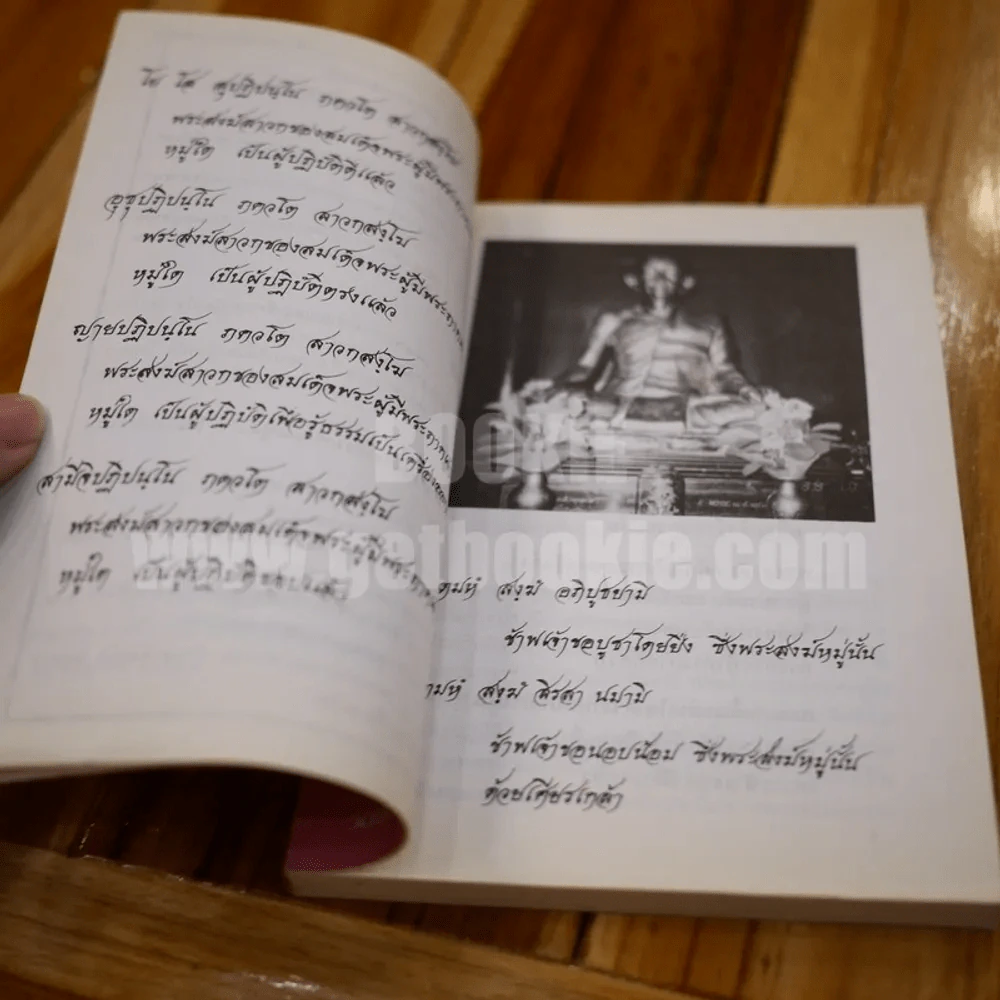 โย โส สุปฏิปนฺโน ภควโต สาวกสงฺโฆ
พระสงฆ์สาวกของสมเด็จพระผู้มีพระภาค
หมู่ใด เป็นผู้ปฏิบัติดีแล้ว
อุชุปฏิปนฺโน ภควโต สาวกสงฺโฆ
พระสงฆ์สาวกของสมเด็จพระผู้มีพระภาค
หมู่ใด เป็นผู้ปฏิบัติตรงแล้ว
ญายปฏิปนฺโน ภควโต สาวกสงฺโฆ
พระสงฆ์สาวกของสมเด็จพระผู้มีพระภาค
หมู่ใด เป็นผู้ปฏิบัติเพื่อรู้ธรรมเป็นเครื่อง
สามีจิปฏิปนฺโน ภควโต สาวกสงฺโฆ
พระสงฆ์สาวกของสมเด็จพระผู้มีพระภาค
หมู่ใด เป็นผู้ปฏิบัติชอบแล้ว
BOOKIE
www.getbookie.com
ตมหํ สงฺฆํ อภิปูชยามิ
ข้าพเจ้าขอบูชาโดยยิ่ง ซึ่งพระสงฆ์หมู่นั้น
ตมหํ สงฺฆํ สิรสา นมามิ
ข้าพเจ้าขอนอบน้อม ซึ่งพระสงฆ์หมู่นั้น
ด้วยเศียรเกล้า